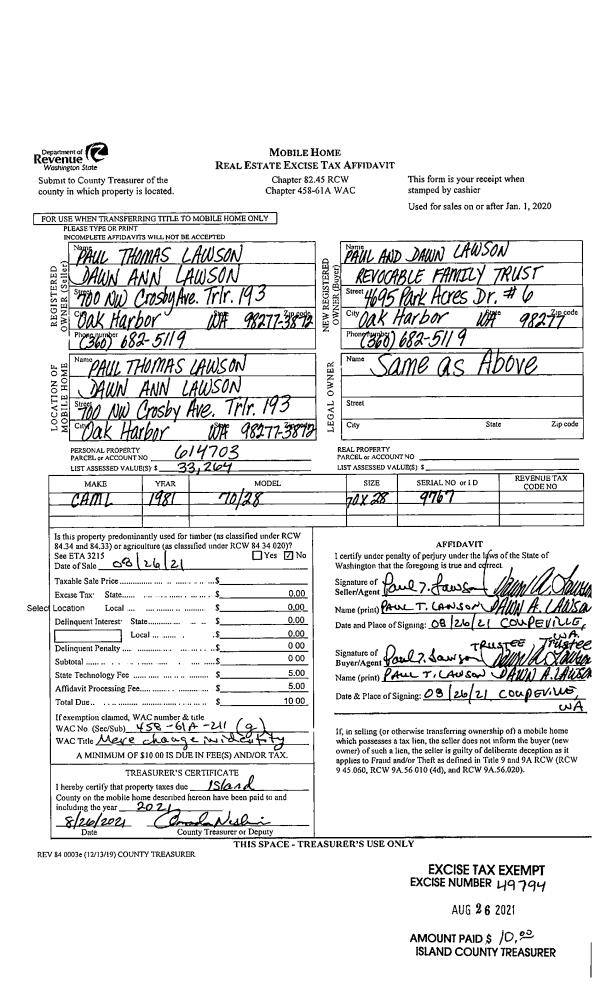 Department of
Revenue
Washington State
Submit to County Treasurer of the
county in which property is located.
MOBILE HOME
REAL ESTATE EXCISE TAX AFFIDAVIT
Chapter 82.45 RCW
Chapter 458-61A WAC
This form is your receipt when
stamped by cashier
Used for sales on or after Jan. 1, 2020
FOR USE WHEN TRANSFERRING TITLE TO MOBILE HOME ONLY
PLEASE TYPE OR PRINT
INCOMPLETE AFFIDAVITS WILL NOT BE ACCEPTED
REGISTERED OWNER (Seller)
Name PAUL THOMAS LAWSON
DAWN ANN LAWSON
Street 700 NW Crosby Ave. Trlr. 193
City Oak Harbor State WA Zip code 98277-3872
Phone number (360) 682-5119
NEW REGISTERED OWNER (Buyer)
Name PAUL AND DAWN LAWSON
REVOCABLE FAMILY TRUST
Street 4695 Park Acres Dr. # 6
City Oak Harbor State WA Zip code 98277
Phone number (360) 682-5119
LOCATION OF MOBILE HOME
Name PAUL THOMAS LAWSON
DAWN ANN LAWSON
Street 700 NW Crosby Ave. Trlr. 193
City Oak Harbor WA 98277-3872
LEGAL OWNER
Name Same as Above
Street
City State Zip code
PERSONAL PROPERTY
PARCEL or ACCOUNT NO 614703
LIST ASSESSED VALUE(S) $ 33,264
REAL PROPERTY
PARCEL or ACCOUNT NO.
LIST ASSESSED VALUE(S) $
MAKE YEAR MODEL SIZE SERIAL NO or I D REVENUE TAX CODE NO
CAML 1981 70/28 70 X 28 9767
Is this property predominantly used for timber (as classified under RCW
84.34 and 84.33) or agriculture (as classified under RCW 84 34 020)?
See ETA 3215 Yes ☑ No
Date of Sale 08/26/21
Taxable Sale Price $
Excise Tax: State $ 0.00
Select Location Local $ 0.00
Delinquent Interest: State $ 0.00
Local $ 0.00
Delinquent Penalty $ 0 00
Subtotal $ 0 00
State Technology Fee $ 5.00
Affidavit Processing Fee $ 5.00
Total Due $ 10 00
If exemption claimed, WAC number & title
WAC No (Sec/Sub) 458-61A-211 (g)
WAC Title Mere change in identity
A MINIMUM OF $10.00 IS DUE IN FEE(S) AND/OR TAX.
AFFIDAVIT
I certify under penalty of perjury under the laws of the State of
Washington that the foregoing is true and correct.
Signature of
Seller/Agent Paul T. Lawson Dawn A. Lawson
Name (print) PAUL T. LAWSON DAWN A. LAWSON
Date and Place of Signing: 08/26/21 COUPEVILLE,
WA.
TRUSTEE, Trustee
Signature of
Buyer/Agent Paul T. Lawson Dawn A. Lawson
Name (print) PAUL T. LAWSON DAWN A. LAWSON
Date & Place of Signing: 08/26/21 COUPEVILLE,
WA
If, in selling (or otherwise transferring ownership of) a mobile home
which possesses a tax lien, the seller does not inform the buyer (new
owner) of such a lien, the seller is guilty of deliberate deception as it
applies to Fraud and/or Theft as defined in Title 9 and 9A RCW (RCW
9 45.060, RCW 9A.56.010 (4d), and RCW 9A.56.020).
TREASURER'S CERTIFICATE
I hereby certify that property taxes due Island
County on the mobile home described hereon have been paid to and
including the year 2021
8/26/2021
Date County Treasurer or Deputy
THIS SPACE - TREASURER'S USE ONLY
REV 84 0003e (12/13/19) COUNTY TREASURER
EXCISE TAX EXEMPT
EXCISE NUMBER 49794
AUG 26 2021
AMOUNT PAID $ 10.00
ISLAND COUNTY TREASURER